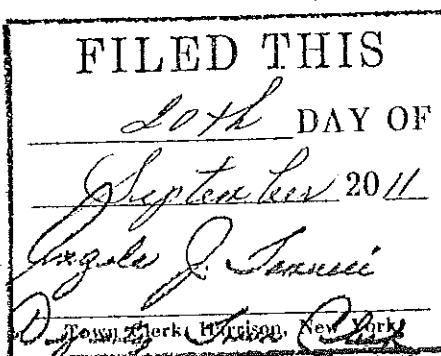 FILED THIS
20th DAY OF
September 2011
Angela J.
Deputy Town Clerk
Town Clerk, Harrison, New York